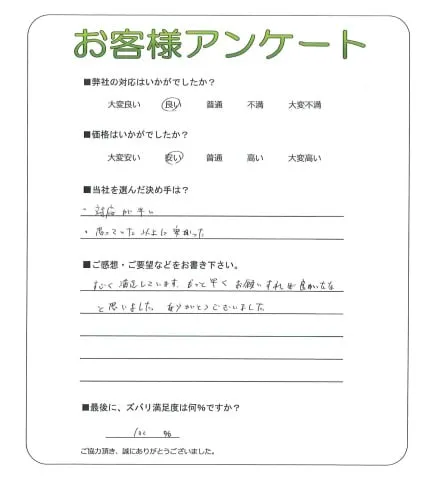 お客様アンケート
■弊社の対応はいかがでしたか?
大変良い 良い 普通 不満 大変不満
■価格はいかがでしたか?
大変安い 安い 普通 高い 大変高い
■当社を選んだ決め手は?
・対応が早い
・思っていた以上に安かった
■ご感想・ご要望などをお書き下さい。
すごく満足しています。もっと早くお願いすれば良かったな
と思いました。ありがとうございました
■最後に、ズバリ満足度は何%ですか?
100 %
ご協力頂き、誠にありがとうございました。